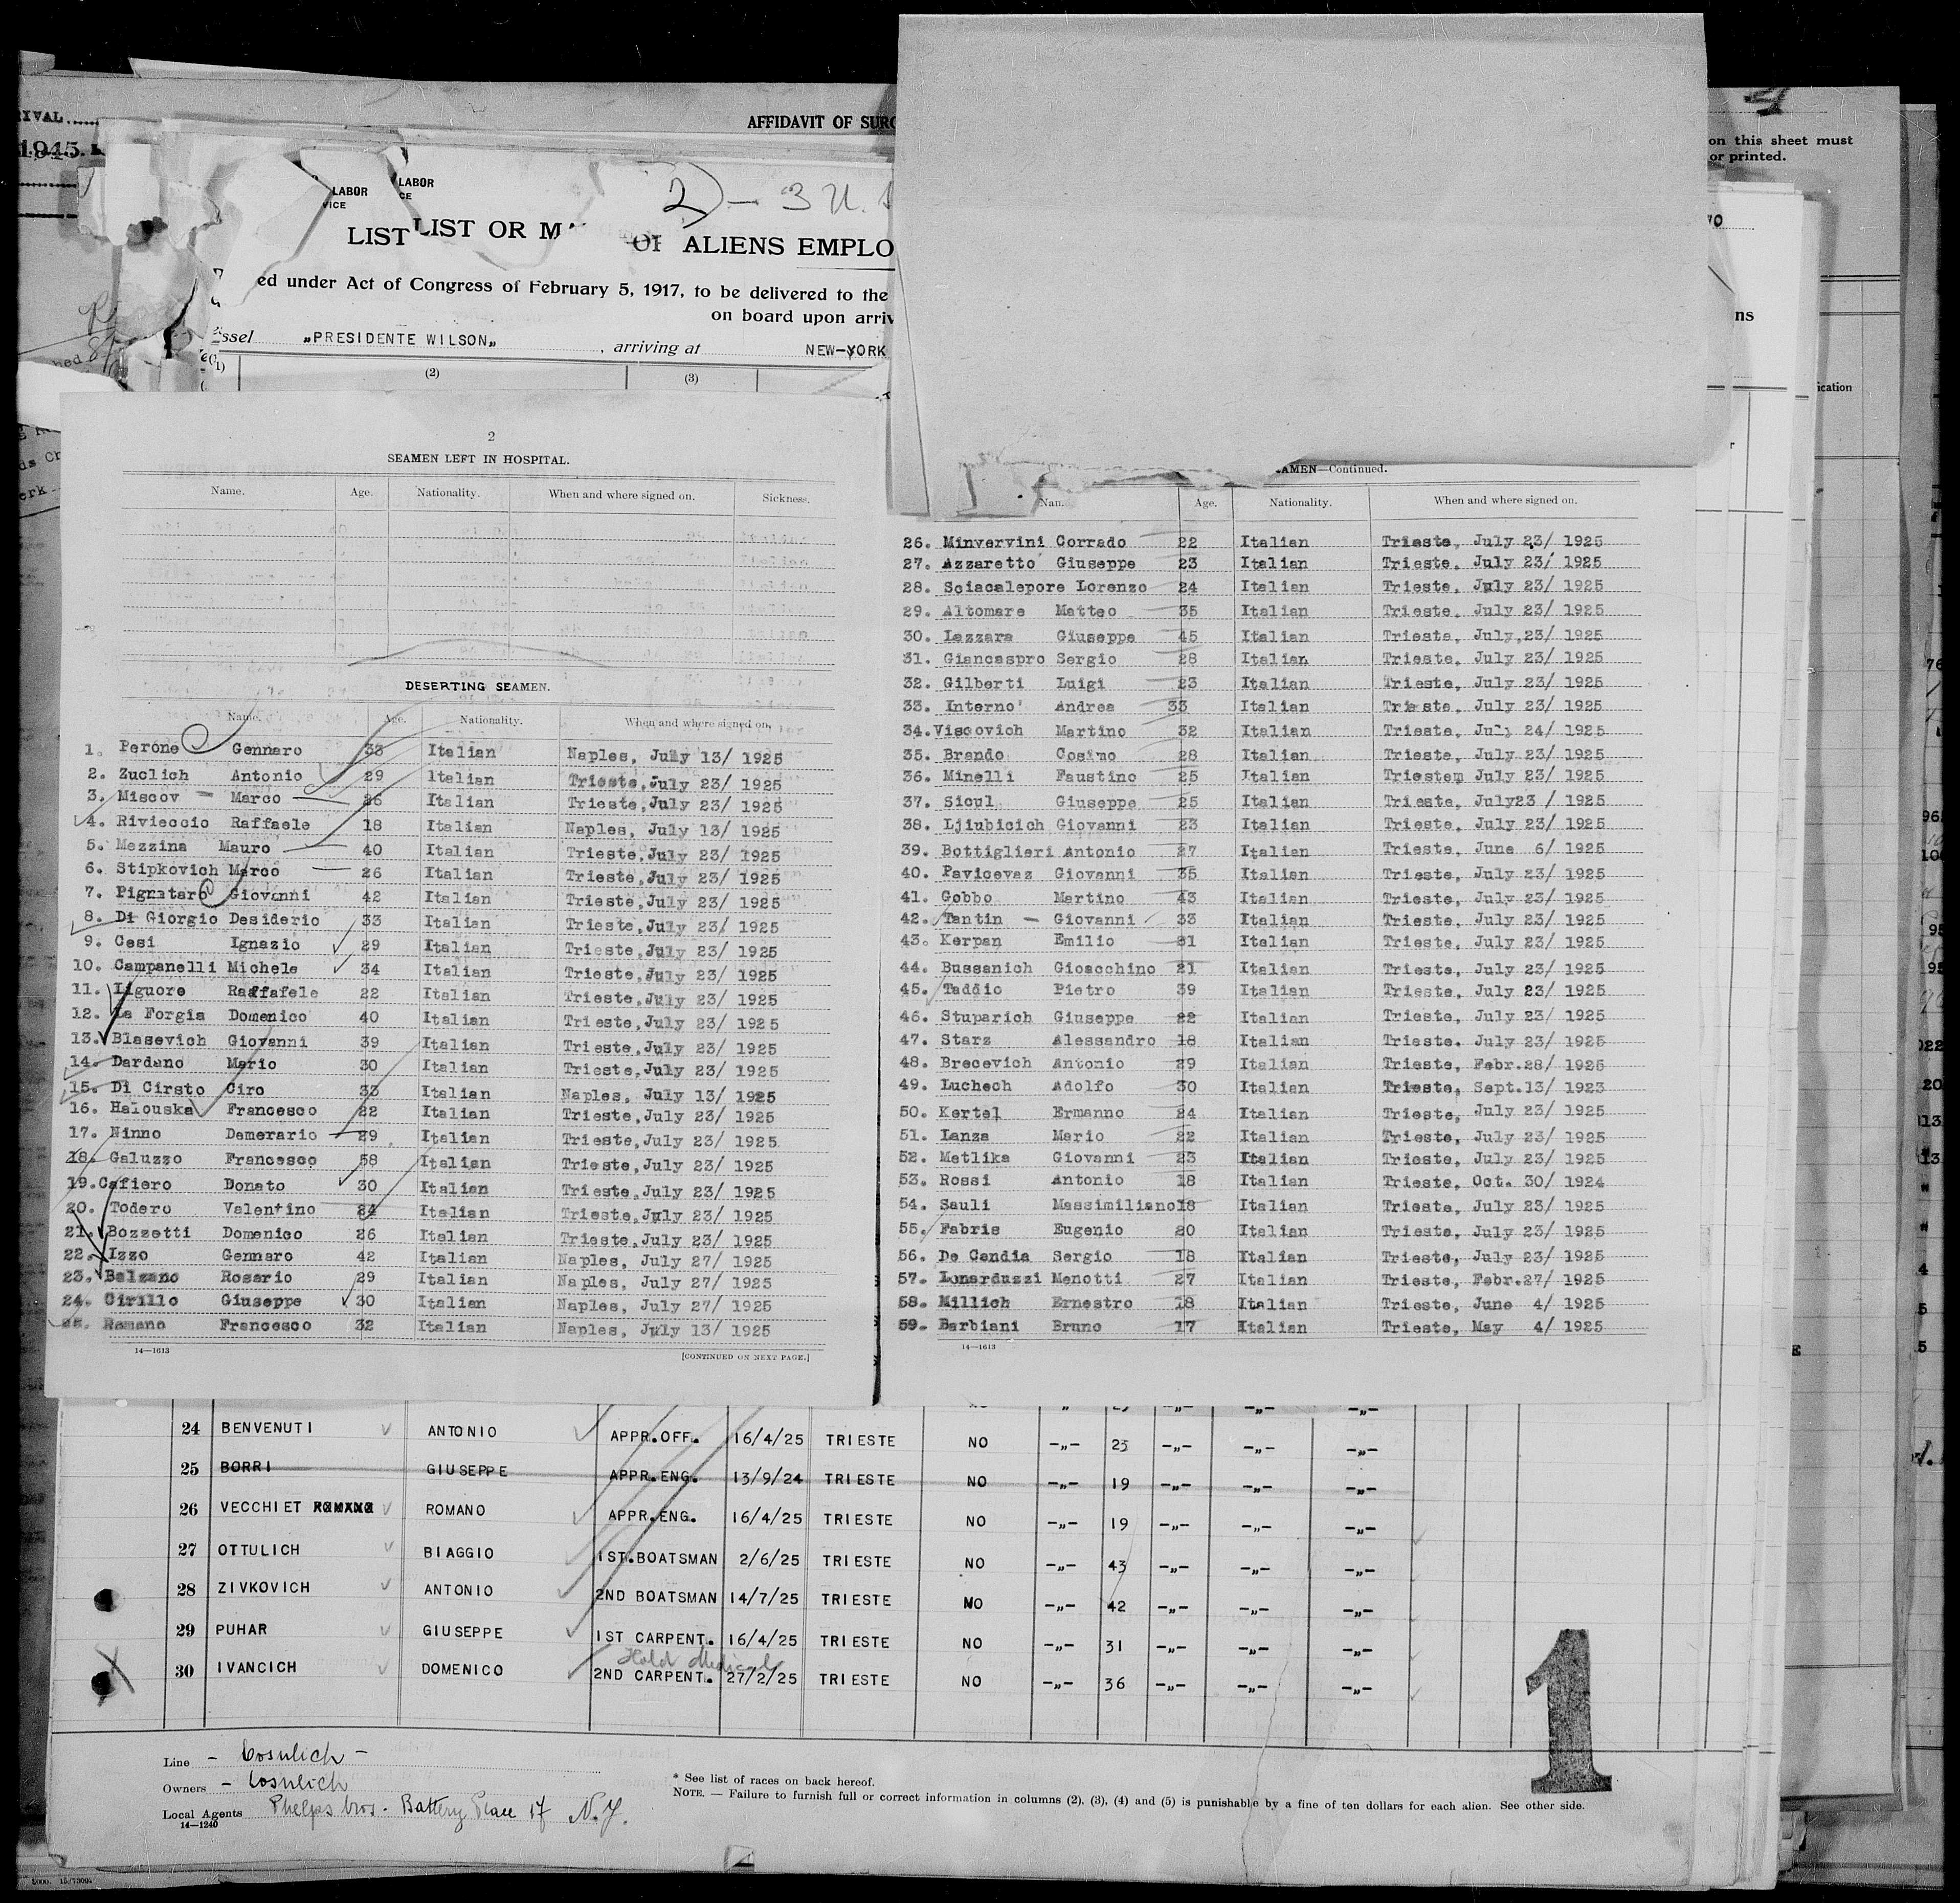 RIVAL
1945.
AFFIDAVIT OF SURG
on this sheet must
or printed.
LABOR
VICE
LABOR
CE
2) - 3 U. S
LIST LIST OR MA OF ALIENS EMPLO
ed under Act of Congress of February 5, 1917, to be delivered to the
on board upon arriv
ssel „PRESIDENTE WILSON„ , arriving at NEW-YORK
(1) (2) (3)
ns
ication
2
SEAMEN LEFT IN HOSPITAL.
Name. Age. Nationality. When and where signed on. Sickness.
DESERTING SEAMEN.
Name. Age. Nationality. When and where signed on.
1. Perone Gennaro 33 Italian Naples, July 13/ 1925
2. Zuclich Antonio 29 Italian Trieste, July 23/ 1925
3. Miscov - Marco 26 Italian Trieste, July 23/ 1925
4. Rivieccio Raffaele 18 Italian Naples, July 13/ 1925
5. Mezzina Mauro 40 Italian Trieste, July 23/ 1925
6. Stipkovich Marco 26 Italian Trieste, July 23/ 1925
7. Pignataro Giovanni 42 Italian Trieste, July 23/ 1925
8. Di Giorgio Desiderio 33 Italian Trieste, July 23/ 1925
9. Cesi Ignazio 29 Italian Trieste, July 23/ 1925
10. Campanelli Michele 34 Italian Trieste, July 23/ 1925
11. Liguore Raffafele 22 Italian Trieste, July 23/ 1925
12. La Forgia Domenico 40 Italian Trieste, July 23/ 1925
13. Blasevich Giovanni 39 Italian Trieste, July 23/ 1925
14. Dardano Mario 30 Italian Trieste, July 23/ 1925
15. Di Cirsto Ciro 33 Italian Naples, July 13/ 1925
16. Halouska Francesco 22 Italian Trieste, July 23/ 1925
17. Ninno Demerario 29 Italian Trieste, July 23/ 1925
18. Galuzzo Francesco 58 Italian Trieste, July 23/ 1925
19. Cafiero Donato 30 Italian Trieste, July 23/ 1925
20. Todero Valentino 24 Italian Trieste, July 23/ 1925
21. Bozzetti Domenico 26 Italian Trieste, July 23/ 1925
22. Izzo Gennaro 42 Italian Naples, July 27/ 1925
23. Balzano Rosario 29 Italian Naples, July 27/ 1925
24. Cirillo Giuseppe 30 Italian Naples, July 27/ 1925
25. Romano Francesco 32 Italian Naples, July 13/ 1925
14—1613 [CONTINUED ON NEXT PAGE.]
AMEN—Continued.
Nam Age. Nationality. When and where signed on.
26. Minvervini Corrado 22 Italian Trieste, July 23/ 1925
27. Azzaretto Giuseppe 23 Italian Trieste, July 23/ 1925
28. Sciacalepore Lorenzo 24 Italian Trieste, July 23/ 1925
29. Altomare Matteo 35 Italian Trieste, July 23/ 1925
30. Lazzara Giuseppe 45 Italian Trieste, July, 23/ 1925
31. Giancaspro Sergio 28 Italian Trieste, July 23/ 1925
32. Gilberti Luigi 23 Italian Trieste, July 23/ 1925
33. Interno' Andrea 33 Italian Trieste, July 23/ 1925
34. Viscovich Martino 32 Italian Trieste, July 24/ 1925
35. Brando Cosimo 28 Italian Trieste, July 23/ 1925
36. Minelli Faustino 25 Italian Triestem July 23/ 1925
37. Sicul Giuseppe 25 Italian Trieste, July23 / 1925
38. Ljiubicich Giovanni 23 Italian Trieste, July 23/ 1925
39. Bottiglieri Antonio 27 Italian Trieste, June 6/ 1925
40. Pavicevaz Giovanni 35 Italian Trieste, July 23/ 1925
41. Gobbo Martino 43 Italian Trieste, July 23/ 1925
42. Tantin - Giovanni 33 Italian Trieste, July 23/ 1925
43. Kerpan Emilio 21 Italian Trieste, July 23/ 1925
44. Bussanich Gioacchino 21 Italian Trieste, July 23/ 1925
45. Taddio Pietro 39 Italian Trieste, July 23/ 1925
46. Stuparich Giuseppe 22 Italian Trieste, July 23/ 1925
47. Starz Alessandro 18 Italian Trieste, July 23/ 1925
48. Brecevich Antonio 29 Italian Trieste, Febr.28/ 1925
49. Luchech Adolfo 30 Italian Trieste, Sept.13/ 1923
50. Kertel Ermanno 24 Italian Trieste, July 23/ 1925
51. Lanza Mario 22 Italian Trieste, July 23/ 1925
52. Metlika Giovanni 23 Italian Trieste, July 23/ 1925
53. Rossi Antonio 18 Italian Trieste, Oct. 30/ 1924
54. Sauli Massimiliano18 Italian Trieste, July 23/ 1925
55. Fabris Eugenio 20 Italian Trieste, July 23/ 1925
56. De Candia Sergio 18 Italian Trieste, July 23/ 1925
57. Lonarduzzi Menotti 27 Italian Trieste, Febr.27/ 1925
58. Millich Ernestro 18 Italian Trieste, June 4/ 1925
59. Barbiani Bruno 17 Italian Trieste, May 4/ 1925
14—1613
24 BENVENUTI ANTONIO APPR.OFF. 16/4/25 TRIESTE NO -„- 23 -„- -„- -„-
25 BORRI GIUSEPPE APPR.ENG. 13/9/24 TRIESTE NO -„- 19 -„- -„- -„-
26 VECCHIET ROMANO ROMANO APPR.ENG. 16/4/25 TRIESTE NO -„- 19 -„- -„- -„-
27 OTTULICH BIAGGIO 1ST.BOATSMAN 2/6/25 TRIESTE NO -„- 43 -„- -„- -„-
28 ZIVKOVICH ANTONIO 2ND BOATSMAN 14/7/25 TRIESTE NO -„- 42 -„- -„- -„-
29 PUHAR GIUSEPPE 1ST CARPENT. 16/4/25 TRIESTE NO -„- 31 -„- -„- -„-
Hold Medical
30 IVANCICH DOMENICO 2ND CARPENT. 27/2/25 TRIESTE NO -„- 36 -„- -„- -„-
1
Line - Cosulich -
Owners - Cosulich
Local Agents Phelps bros. Battery Place 17 N.Y.
14—1240
* See list of races on back hereof.
NOTE. — Failure to furnish full or correct information in columns (2), (3), (4) and (5) is punishable by a fine of ten dollars for each alien. See other side.